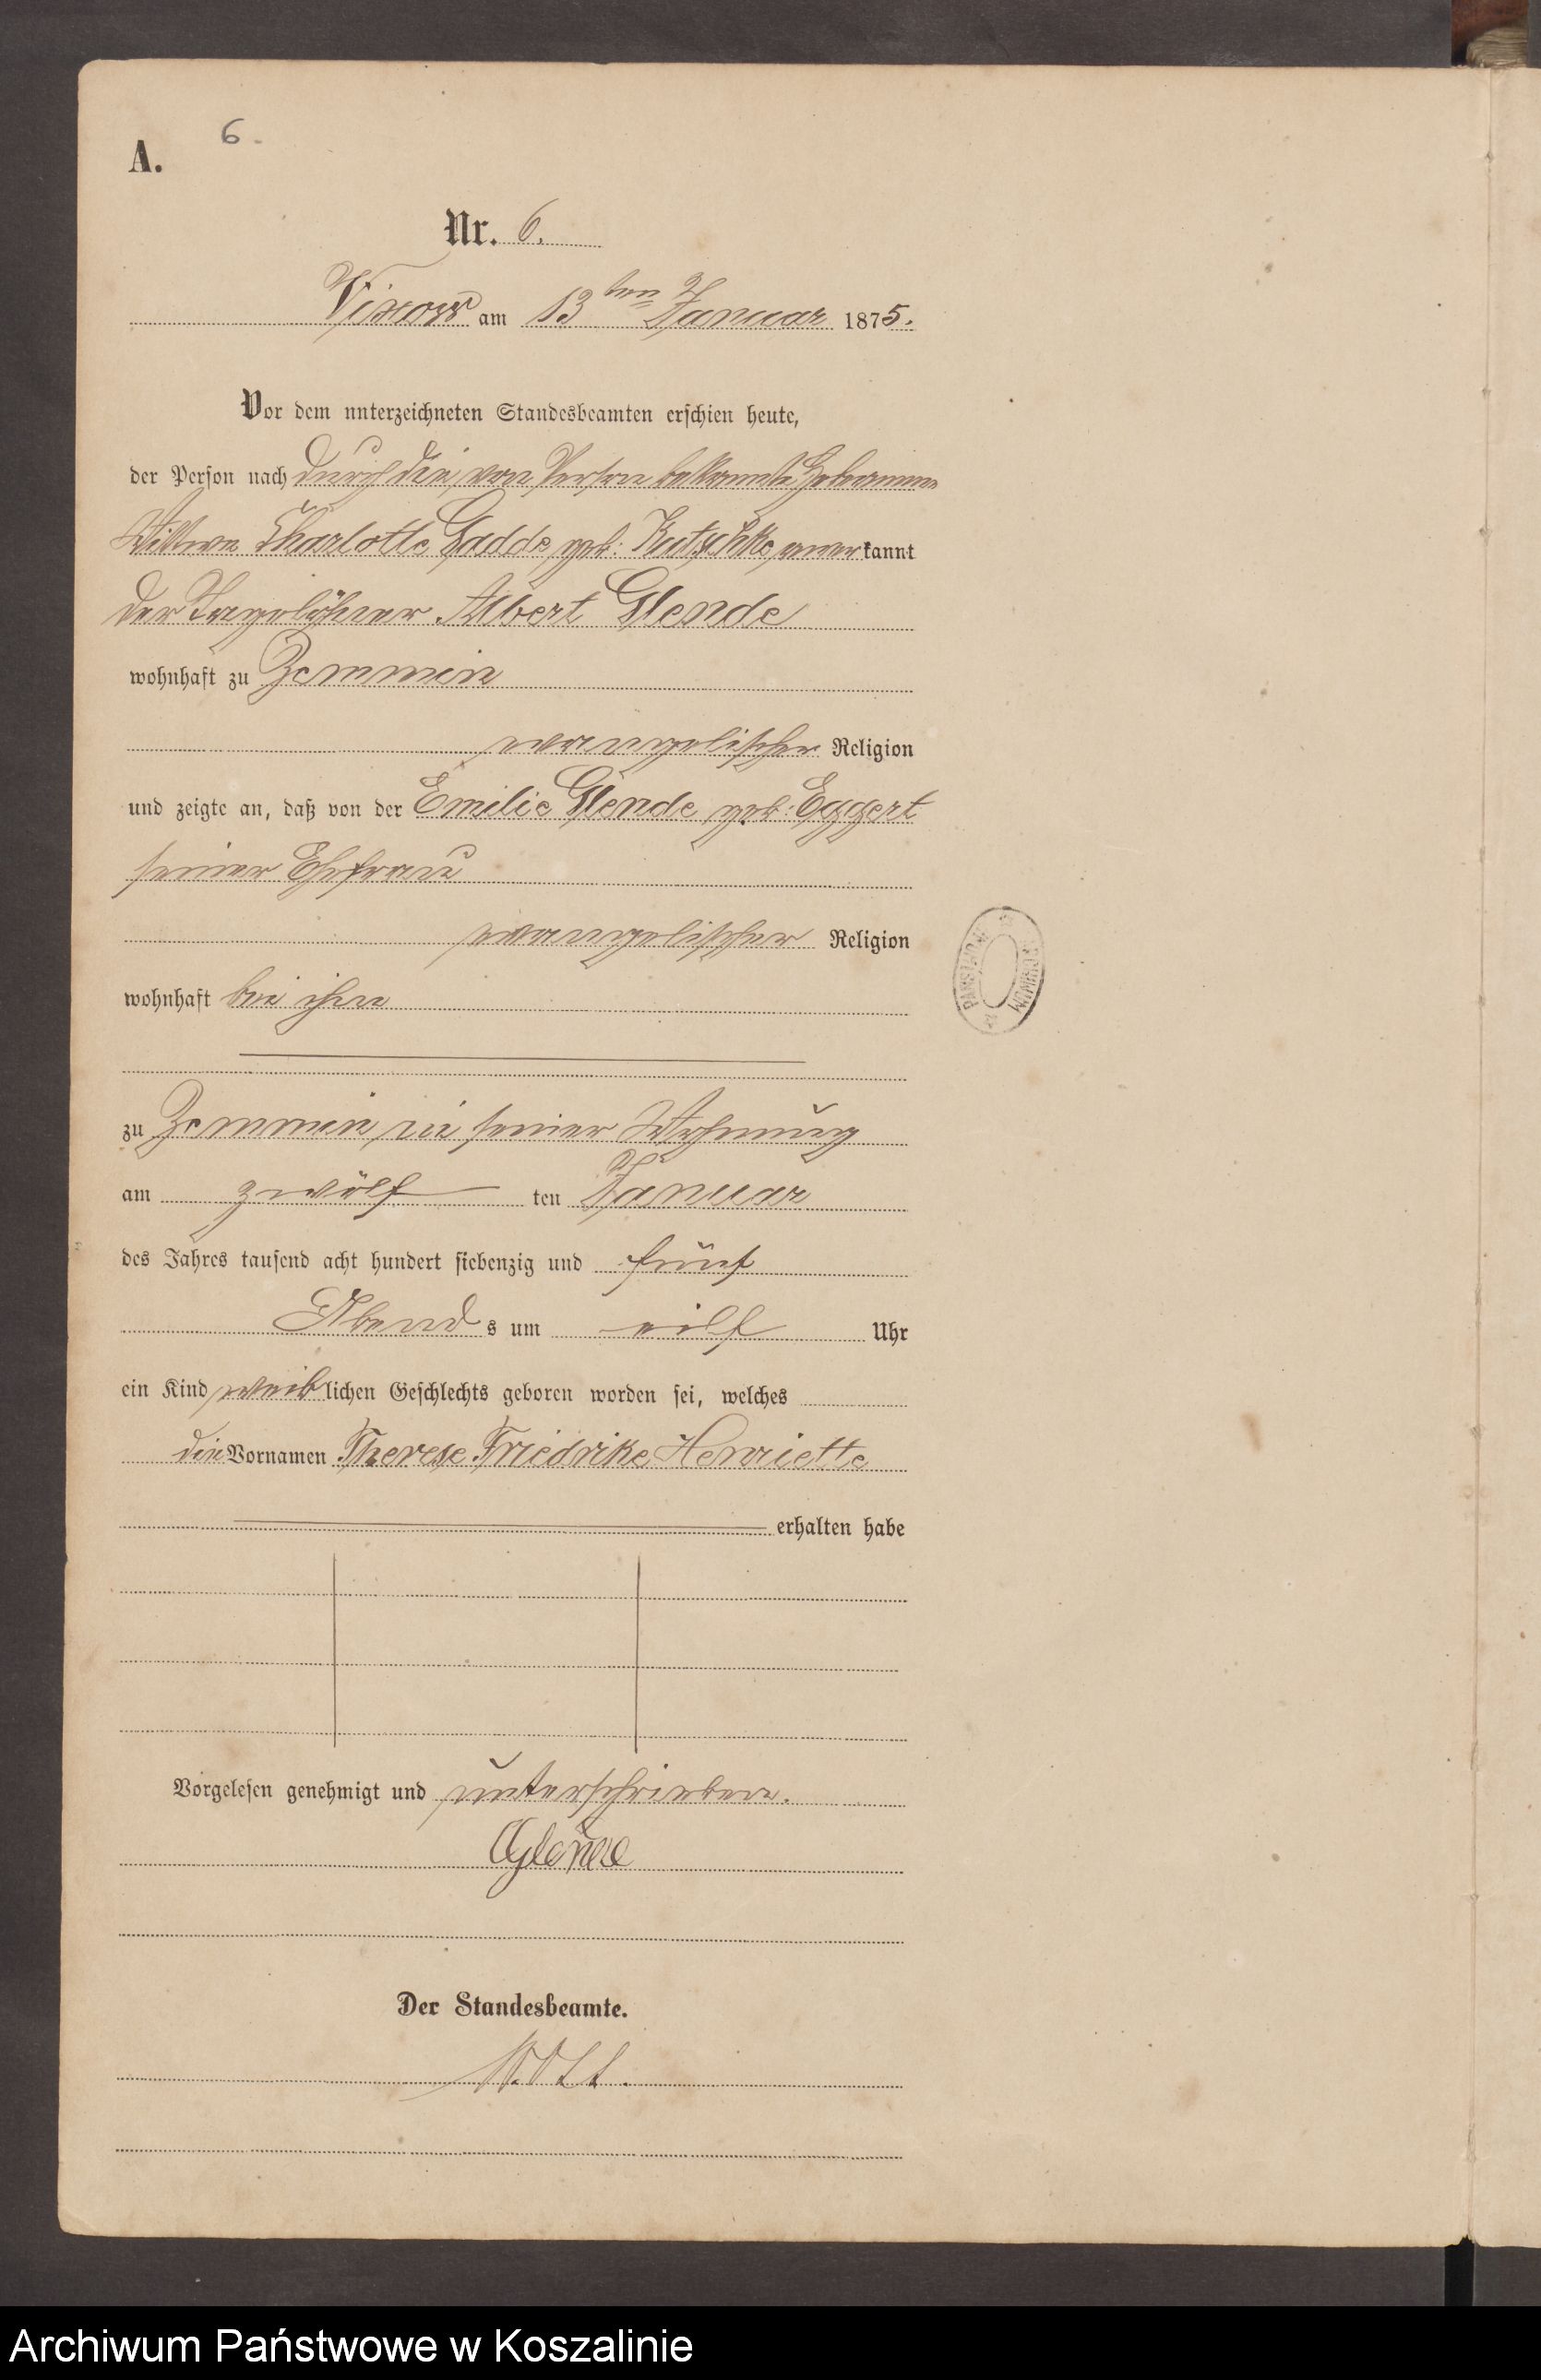 6.
A.
Nr. 6.
Vixow am 13ten Januar 1875.
Vor dem unterzeichneten Standesbeamten erschien heute,
der Person nach durch die von Person bekannte Hebamme
Wittwe Charlotte Gadde geb. Kutschke anerkannt
der Tagelöhner Albert Glende
wohnhaft zu Zemmin
evangelischer Religion
und zeigte an, daß von der Emilie Glende geb: Eggert
seiner Ehefrau
evangelischer Religion
wohnhaft bei ihm
zu Zemmin in seiner Wohnung
am zwölf ten Januar
des Jahres tausend acht hundert siebenzig und fünf
Abends um eilf Uhr
ein Kind weiblichen Geschlechts geboren worden sei, welches
die Vornamen Therese Friedrike Henriette
erhalten habe
Vorgelesen genehmigt und unterschrieben.
AGlende
Der Standesbeamte.
ARCHIWUM PAŃSTWOWE
Archiwum Państwowe w Koszalinie